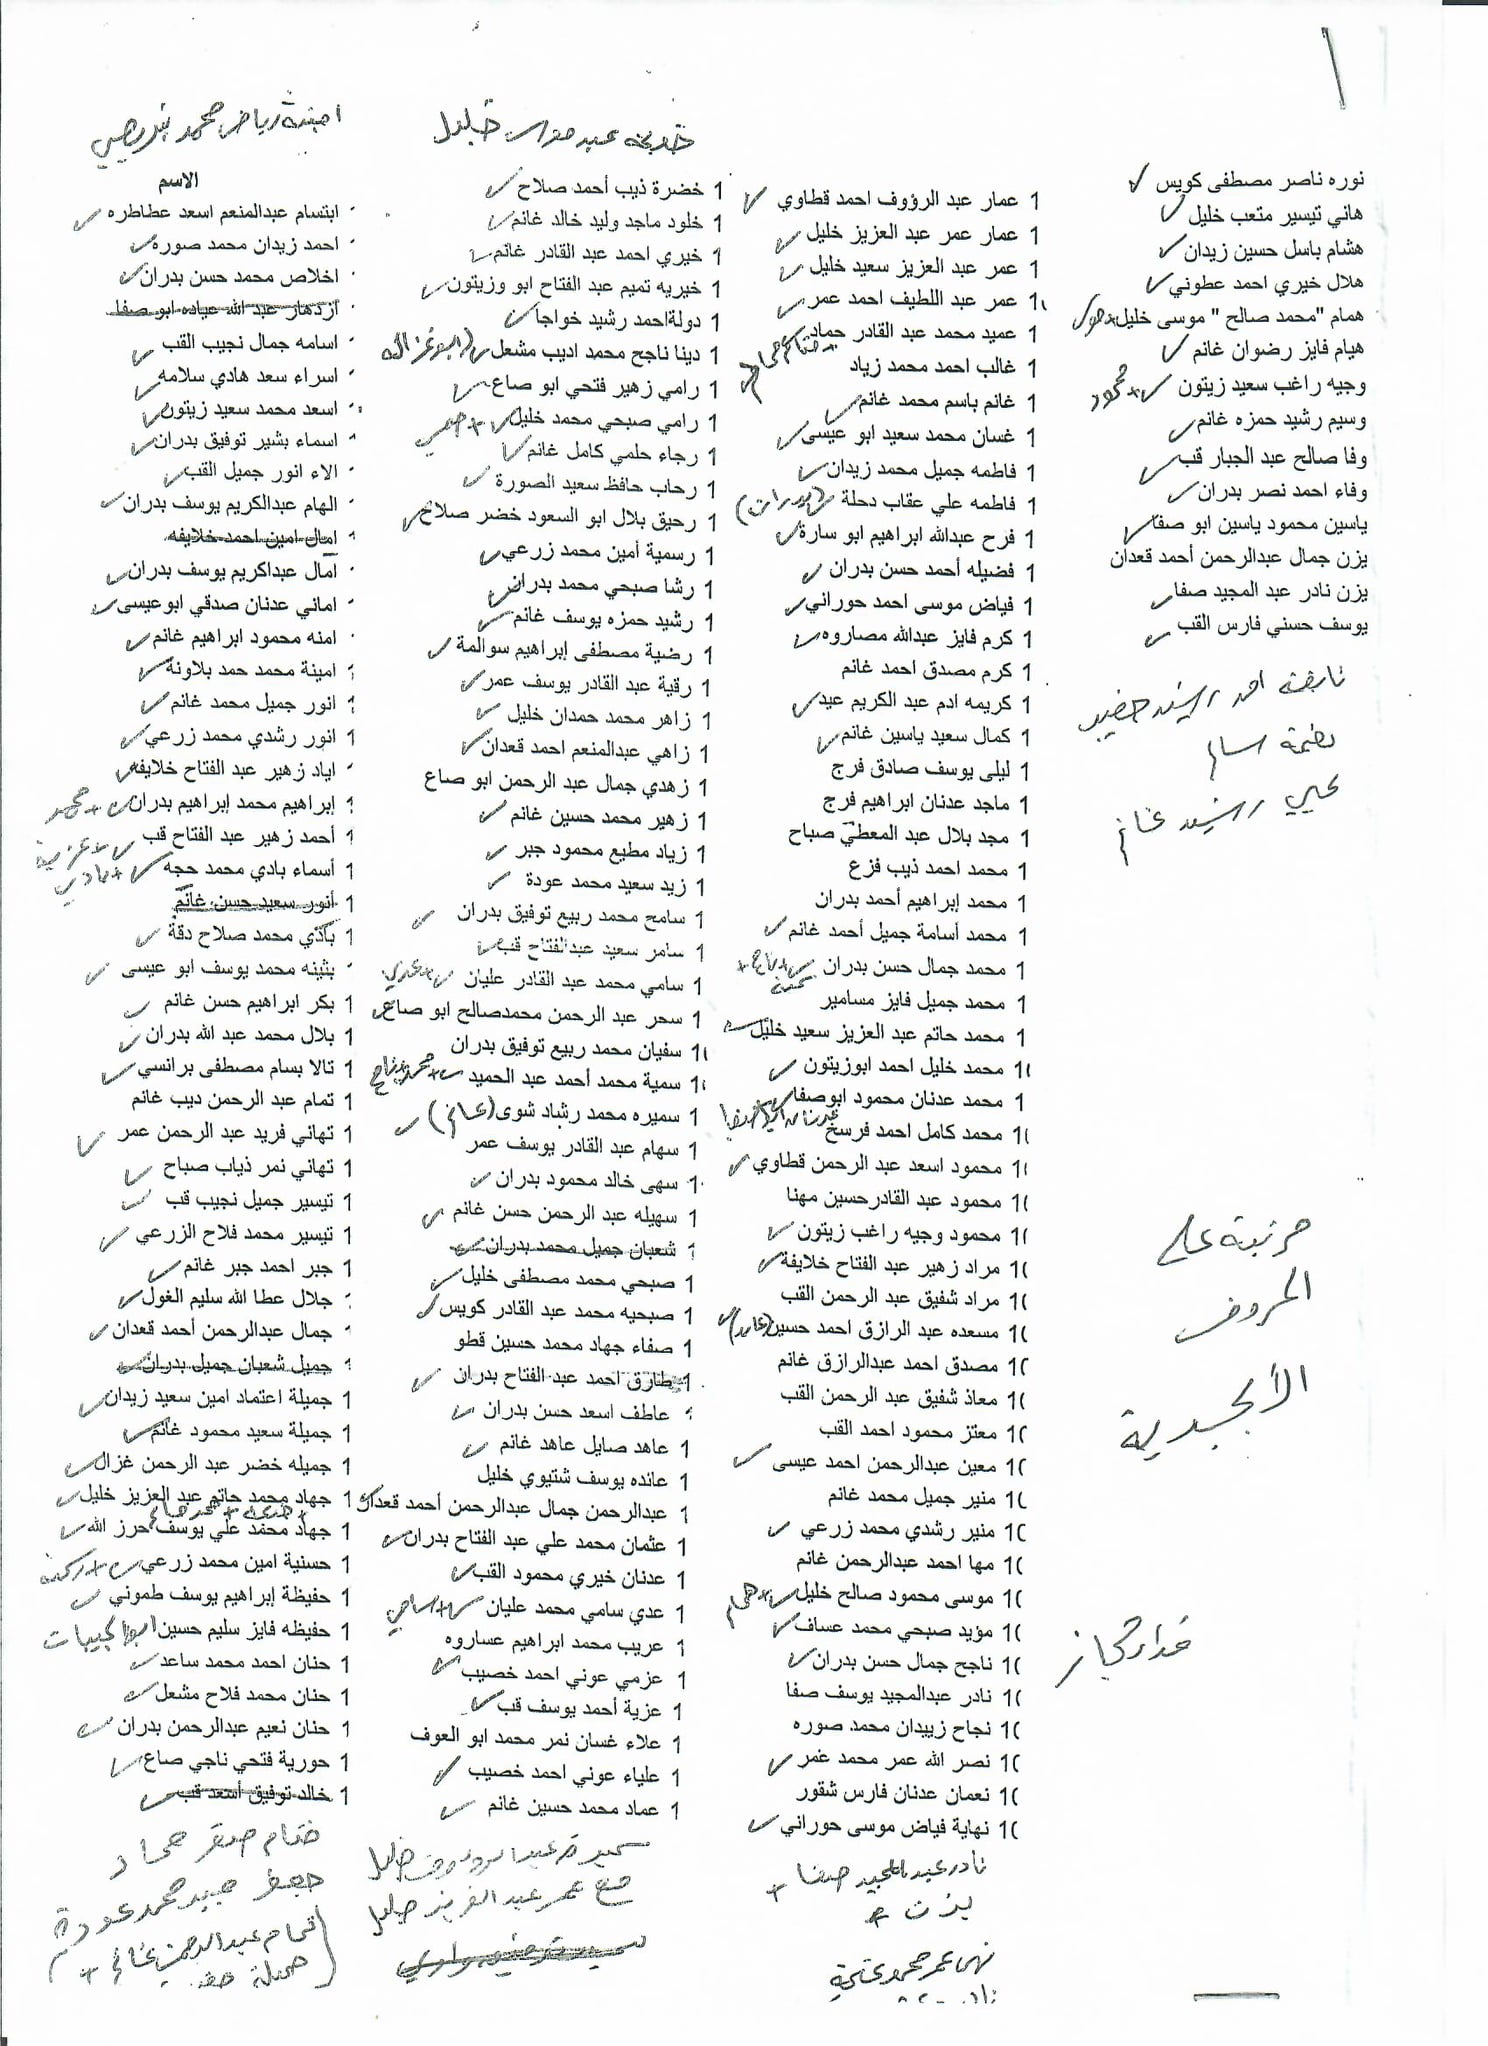 امنة رياض محمد
الاسم
ابتسام عبدالمنعم اسعد عطاطره
احمد زيدان محمد صوره
اخلاص محمد حسن بدران
ازدهار عبد الله عياده ابو صفا
اسامه جمال نجيب القب
اسراء سعد هادي سلامه
اسعد محمد سعيد زيتون
اسماء بشير توفيق بدران
الاء انور جميل القب
الهام عبدالكريم يوسف بدران
امال امين احمد خلايفه
امال عبداكريم يوسف بدران
اماني عدنان صدقي ابوعيسى
امنه محمود ابراهيم غانم
امينة محمد حمد بلاونة
انور جميل محمد غانم
انور رشدي محمد زرعي
اياد زهير عبد الفتاح خلايفه
إبراهيم محمد إبراهيم بدران + محمد
1 أحمد زهير عبد الفتاح قب + عزية
1 أسماء بادي محمد حجه + بادي
1 أنور سعيد حسن غانم
1 باكزي محمد صلاح دقة
بثينه محمد يوسف ابو عيسى
1 بكر ابراهيم حسن غانم
1 بلال محمد عبد الله بدران
1 تالا بسام مصطفى برانسي
1 تمام عبد الرحمن ديب غانم
1 تهاني فريد عبد الرحمن عمر
1 تهاني نمر ذياب صباح
1 تيسير جميل نجيب قب
1 تيسير محمد فلاح الزرعي
1 جبر احمد جبر غانم
جلال عطا الله سليم الغول
جمال عبدالرحمن أحمد قعدان
جميل شعبان جميل بدران
1 جميلة اعتماد امين سعيد زيدان
1 جميلة سعيد محمود غانم
1 جميله خضر عبد الرحمن غزال
1 جهاد محمد حاتم عبد العزيز خليل
1 جهاد محمد علي يوسف حرز الله
1 حسنية امين محمد زرعي
1 حفيظة إبراهيم يوسف طموني
1 حفيظه فايز سليم حسين
1 حنان احمد محمد ساعد
1 حنان محمد فلاح مشعل
1 حنان نعيم عبدالرحمن بدران
1 حورية فتحي ناجي صاع
1 خالد توفيق أسعد قب
ختام صقر حماد
محمد عودة
تمام عبدالرحمن غانم +
جميلة
خليل
1 خضرة ذيب أحمد صلاح
1 خلود ماجد وليد خالد غانم
1 خيري احمد عبد القادر غانم
1 خيريه تميم عبد الفتاح ابو وزيتون
1 دولةاحمد رشيد خواجا
1 دينا ناجح محمد اديب مشعل
1 رامي زهير فتحي ابو صاع
1 رامي صبحي محمد خليل + صبحي
1 رجاء حلمي كامل غانم
1 رحاب حافظ سعيد الصورة
1 رحيق بلال ابو السعود خضر صلاح
1 رسمية أمين محمد زرعي
1 رشا صبحي محمد بدران
1 رشيد حمزه يوسف غانم
1 رضية مصطفى إبراهيم سوالمة
1 رقية عبد القادر يوسف عمر
1 زاهر محمد حمدان خليل
1 زاهي عبدالمنعم احمد قعدان
1 زهدي جمال عبد الرحمن ابو صاع
1 زهير محمد حسين غانم
1 زياد مطيع محمود جبر
1 زيد سعيد محمد عودة
1 سامح محمد ربيع توفيق بدران
1 سامر سعيد عبدالفتاح قب
1 سامي محمد عبد القادر عليان + عدي
1 سحر عبد الرحمن محمدصالح ابو صاع
1 سفيان محمد ربيع توفيق بدران
1 سمية محمد أحمد عبد الحميد
1 سميره محمد رشاد شوى (غانم)
1 سهام عبد القادر يوسف عمر
1 سهى خالد محمود بدران
1 سهيله عبد الرحمن حسن غانم
شعبان جميل محمد بدران
1 صبحي محمد مصطفى خليل
1 صبحيه محمد عبد القادر كويس
1 صفاء جهاد محمد حسين قطو
1 طارق احمد عبد الفتاح بدران
عاطف اسعد حسن بدران
1 عاهد صايل عاهد غانم
1 عائده يوسف شتيوي خليل
1 عبدالرحمن جمال عبدالرحمن أحمد قعدان
1 عثمان محمد علي عبد الفتاح بدران
1 عدنان خيري محمود القب
1 عدي سامي محمد عليان + سامي
1 عريب محمد ابراهيم عساروه
1 عزمي عوني احمد خصيب
1 عزية أحمد يوسف قب
1 علاء غسان نمر محمد ابو العوف
1 علياء عوني احمد خصيب
1 عماد محمد حسين غانم
سميرة عبد الرؤوف خليل
عمر عبد العزيز خليل
1 عمار عبد الرؤوف احمد قطاوي
1 عمار عمر عبد العزيز خليل
1 عمر عبد العزيز سعيد خليل
1 عمر عبد اللطيف احمد عمر
1 عميد محمد عبد القادر حماد
1 غالب احمد محمد زياد
1 غانم باسم محمد غانم
1 غسان محمد سعيد ابو عيسى
1 فاطمه جميل محمد زيدان
1 فاطمه علي عقاب دحلة (بدران)
1 فرح عبدالله ابراهيم ابو سارة
1 فضيله أحمد حسن بدران
1 فياض موسى احمد حوراني
1 كرم فايز عبدالله مصاروه
1 كرم مصدق احمد غانم
1 كريمه ادم عبد الكريم عيد
1 كمال سعيد ياسين غانم
1 ليلى يوسف صادق فرج
1 ماجد عدنان ابراهيم فرج
1 مجد بلال عبد المعطي صباح
1 محمد احمد ذيب فزع
1 محمد إبراهيم أحمد بدران
1 محمد أسامة جميل أحمد غانم
1 محمد جمال حسن بدران
1 محمد جميل فايز مسامير
1 محمد حاتم عبد العزيز سعيد خليل
1 محمد خليل احمد ابوزيتون
1 محمد عدنان محمود ابوصفا
1 محمد كامل احمد فرسخ
1 محمود اسعد عبد الرحمن قطاوي
1 محمود عبد القادرحسين مهنا
1 محمود وجيه راغب زيتون
1 مراد زهير عبد الفتاح خلايفة
1 مراد شفيق عبد الرحمن القب
1 مسعده عبد الرازق احمد حسين
1 مصدق احمد عبدالرازق غانم
1 معاذ شفيق عبد الرحمن القب
1 معتز محمود احمد القب
1 معين عبدالرحمن احمد عيسى
1 منير جميل محمد غانم
1 منير رشدي محمد زرعي
1 مها احمد عبدالرحمن غانم
1 موسى محمود صالح خليل + همام
1 مؤيد صبحي محمد عساف
1 ناجح جمال حسن بدران
1 نادر عبدالمجيد يوسف صفا
1 نجاح زييدان محمد صوره
1 نصر الله عمر محمد عمر
1 نعمان عدنان فارس شقور
1 نهاية فياض موسى حوراني
نادر عبد المجيد صفا +
يزن
نهى عمر محمود
نوره ناصر مصطفى كويس
هاني تيسير متعب خليل
هشام باسل حسين زيدان
هلال خيري احمد عطوني
همام "محمد صالح " موسى خليل
هيام فايز رضوان غانم
وجيه راغب سعيد زيتون + محمود
وسيم رشيد حمزه غانم
وفا صالح عبد الجبار قب
وفاء احمد نصر بدران
ياسين محمود ياسين ابو صفا
يزن جمال عبدالرحمن أحمد قعدان
يزن نادر عبد المجيد صفا
يوسف حسني فارس القب
احمد رشيد خضير
يحيى رشيد غانم
مرتبة على
الحروف
الأبجدية